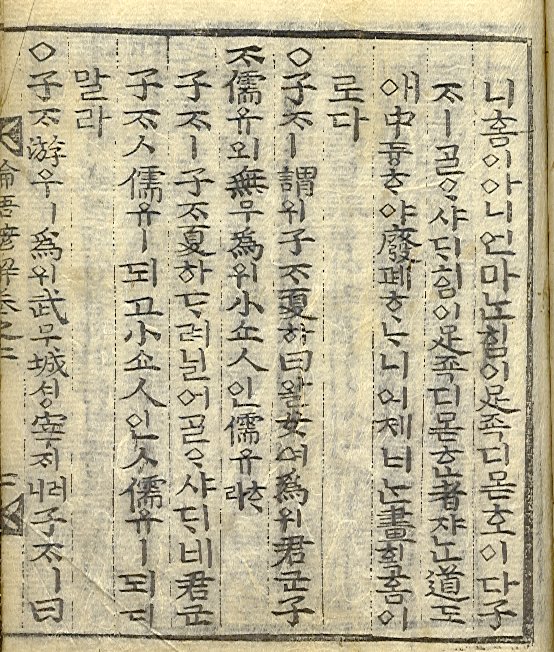 니홈이아니언마ᄂᆞᆫ힘이足죡디몯호이다子
ᄌᆞㅣᄀᆞᆯᄋᆞ샤ᄃᆡ힘이足죡디몯ᄒᆞᆫ者쟈ᄂᆞᆫ道도
애中듕ᄒᆞ야廢폐ᄒᆞᄂᆞ니이제너ᄂᆞᆫ畫획홈이
로다
○子ᄌᆞㅣ謂위子ᄌᆞ夏하曰왈女여爲위君군子
ᄌᆞ儒유외無무爲위小쇼人인儒유ᄒᆞ라
子ᄌᆞㅣ子ᄌᆞ夏하ᄃᆞ려닐어ᄀᆞᆯᄋᆞ샤ᄃᆡ네君군
子ᄌᆞㅅ儒유ㅣ되고小쇼人인ㅅ儒유ㅣ되디
말라
○子ᄌᆞ游유ㅣ爲위武무城셩宰ᄌᆡ러니子ᄌᆞㅣ曰
論語諺解卷之二